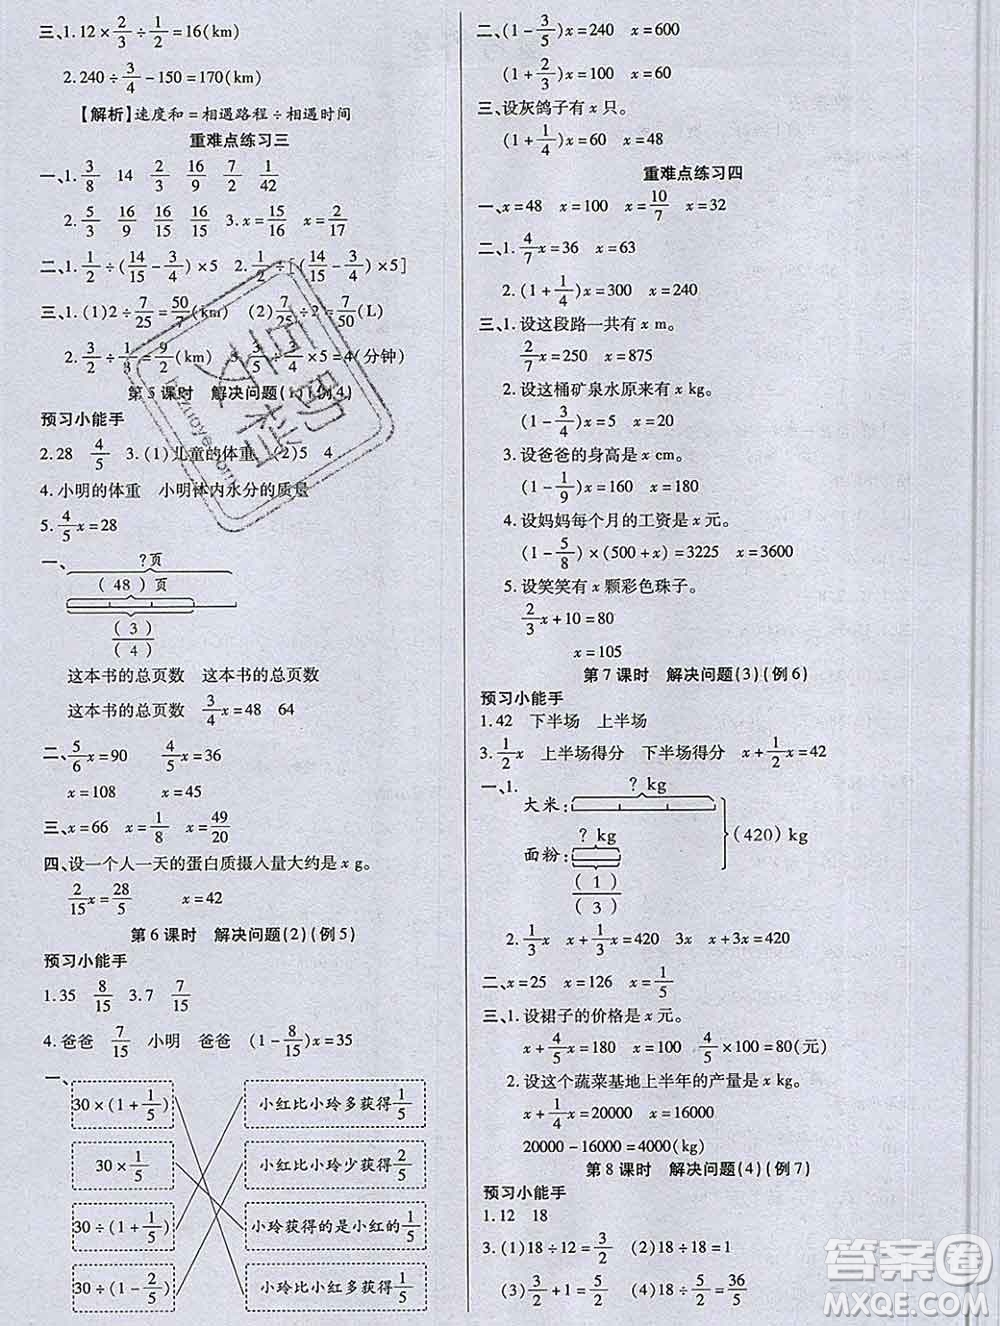 三、1. 12 × 2/3 ÷ 1/2 = 16(km)
2. 240 ÷ 3/4 − 150 = 170(km)
【解析】速度和=相遇路程÷相遇时间
重难点练习三
一、1. 3/8 14 2/3 16/9 7/2 1/42
2. 5/3 16/9 16/15 16/15 3. x = 15/16 x = 2/17
二、1. 1/2 ÷ (14/15 − 3/4) × 5 2. 1/2 ÷ [(14/15 − 3/4) × 5]
三、1. (1) 2 ÷ 7/25 = 50/7(km) (2) 7/25 ÷ 2 = 7/50(L)
2. 3/2 ÷ 1/3 = 9/2(km) 3. 3/5 ÷ 3/4 × 5 = 4(分钟)
第 5 课时 解决问题(1)(例4)
预习小能手
2. 28 4/5 3. (1)儿童的体重 (2)5 4
4. 小明的体重 小明体内水分的质量
5. 4/5 x = 28
一、
?页
(48)页
(3)/(4)
这本书的总页数 这本书的总页数
这本书的总页数 3/4 x = 48 64
二、5/6 x = 90 4/5 x = 36
x = 108 x = 45
三、x = 66 x = 1/8 x = 49/20
四、设一个人一天的蛋白质摄人量大约是 x g。
2/15 x = 28/5 x = 42
第 6 课时 解决问题(2)(例5)
预习小能手
1. 35 8/15 3. 7 7/15
4. 爸爸 7/15 小明 爸爸 (1 − 8/15)x = 35
一、
30 × (1 + 1/5) 小红比小玲多获得 1/5
30 × 1/5 小红比小玲少获得 2/5
30 ÷ (1 + 1/5) 小玲获得的是小红的 1/5
30 ÷ (1 − 2/5) 小玲比小红多获得 1/5
二、(1 − 3/5)x = 240 x = 600
(1 + 2/3)x = 100 x = 60
三、设灰鸽子有 x 只。
(1 + 1/4)x = 60 x = 48
重难点练习四
一、x = 48 x = 100 x = 10/7 x = 32
二、1. 4/7 x = 36 x = 63
2. (1 + 1/4)x = 300 x = 240
三、1. 设这段路一共有 x m。
2/7 x = 250 x = 875
2. 设这桶矿泉水原来有 x kg。
(1 − 3/8)x = 5 x = 8
3. 设爸爸的身高是 x cm。
(1 − 1/9)x = 160 x = 180
4. 设妈妈每个月的工资是 x 元。
(1 − 5/8) × (500 + x) = 3225 x = 3600
5. 设笑笑有 x 颗彩色珠子。
2/3 x + 10 = 80
x = 105
第 7 课时 解决问题(3)(例6)
预习小能手
1. 42 下半场 上半场
3. 1/2 x 上半场得分 下半场得分 x + 1/2 x = 42
一、1.
? kg
大米:
? kg
面粉:
(1)/(3)
(420) kg
2. 1/3 x x + 1/3 x = 420 3x 3x + x = 420
二、x = 25 x = 126 x = 1/5
三、1. 设裙子的价格是 x 元。
x + 4/5 x = 180 x = 100 4/5 × 100 = 80(元)
2. 设这个蔬菜基地上半年的产量是 x kg。
x + 1/4 x = 20000 x = 16000
20000 − 16000 = 4000(kg)
第 8 课时 解决问题(4)(例7)
预习小能手
1. 12 18
3. (1) 18 ÷ 12 = 3/2 (2) 18 ÷ 18 = 1
(3) 3/2 + 1 = 5/2 (4) 18 ÷ 5/2 = 36/5
答案圈
MXQE.COM